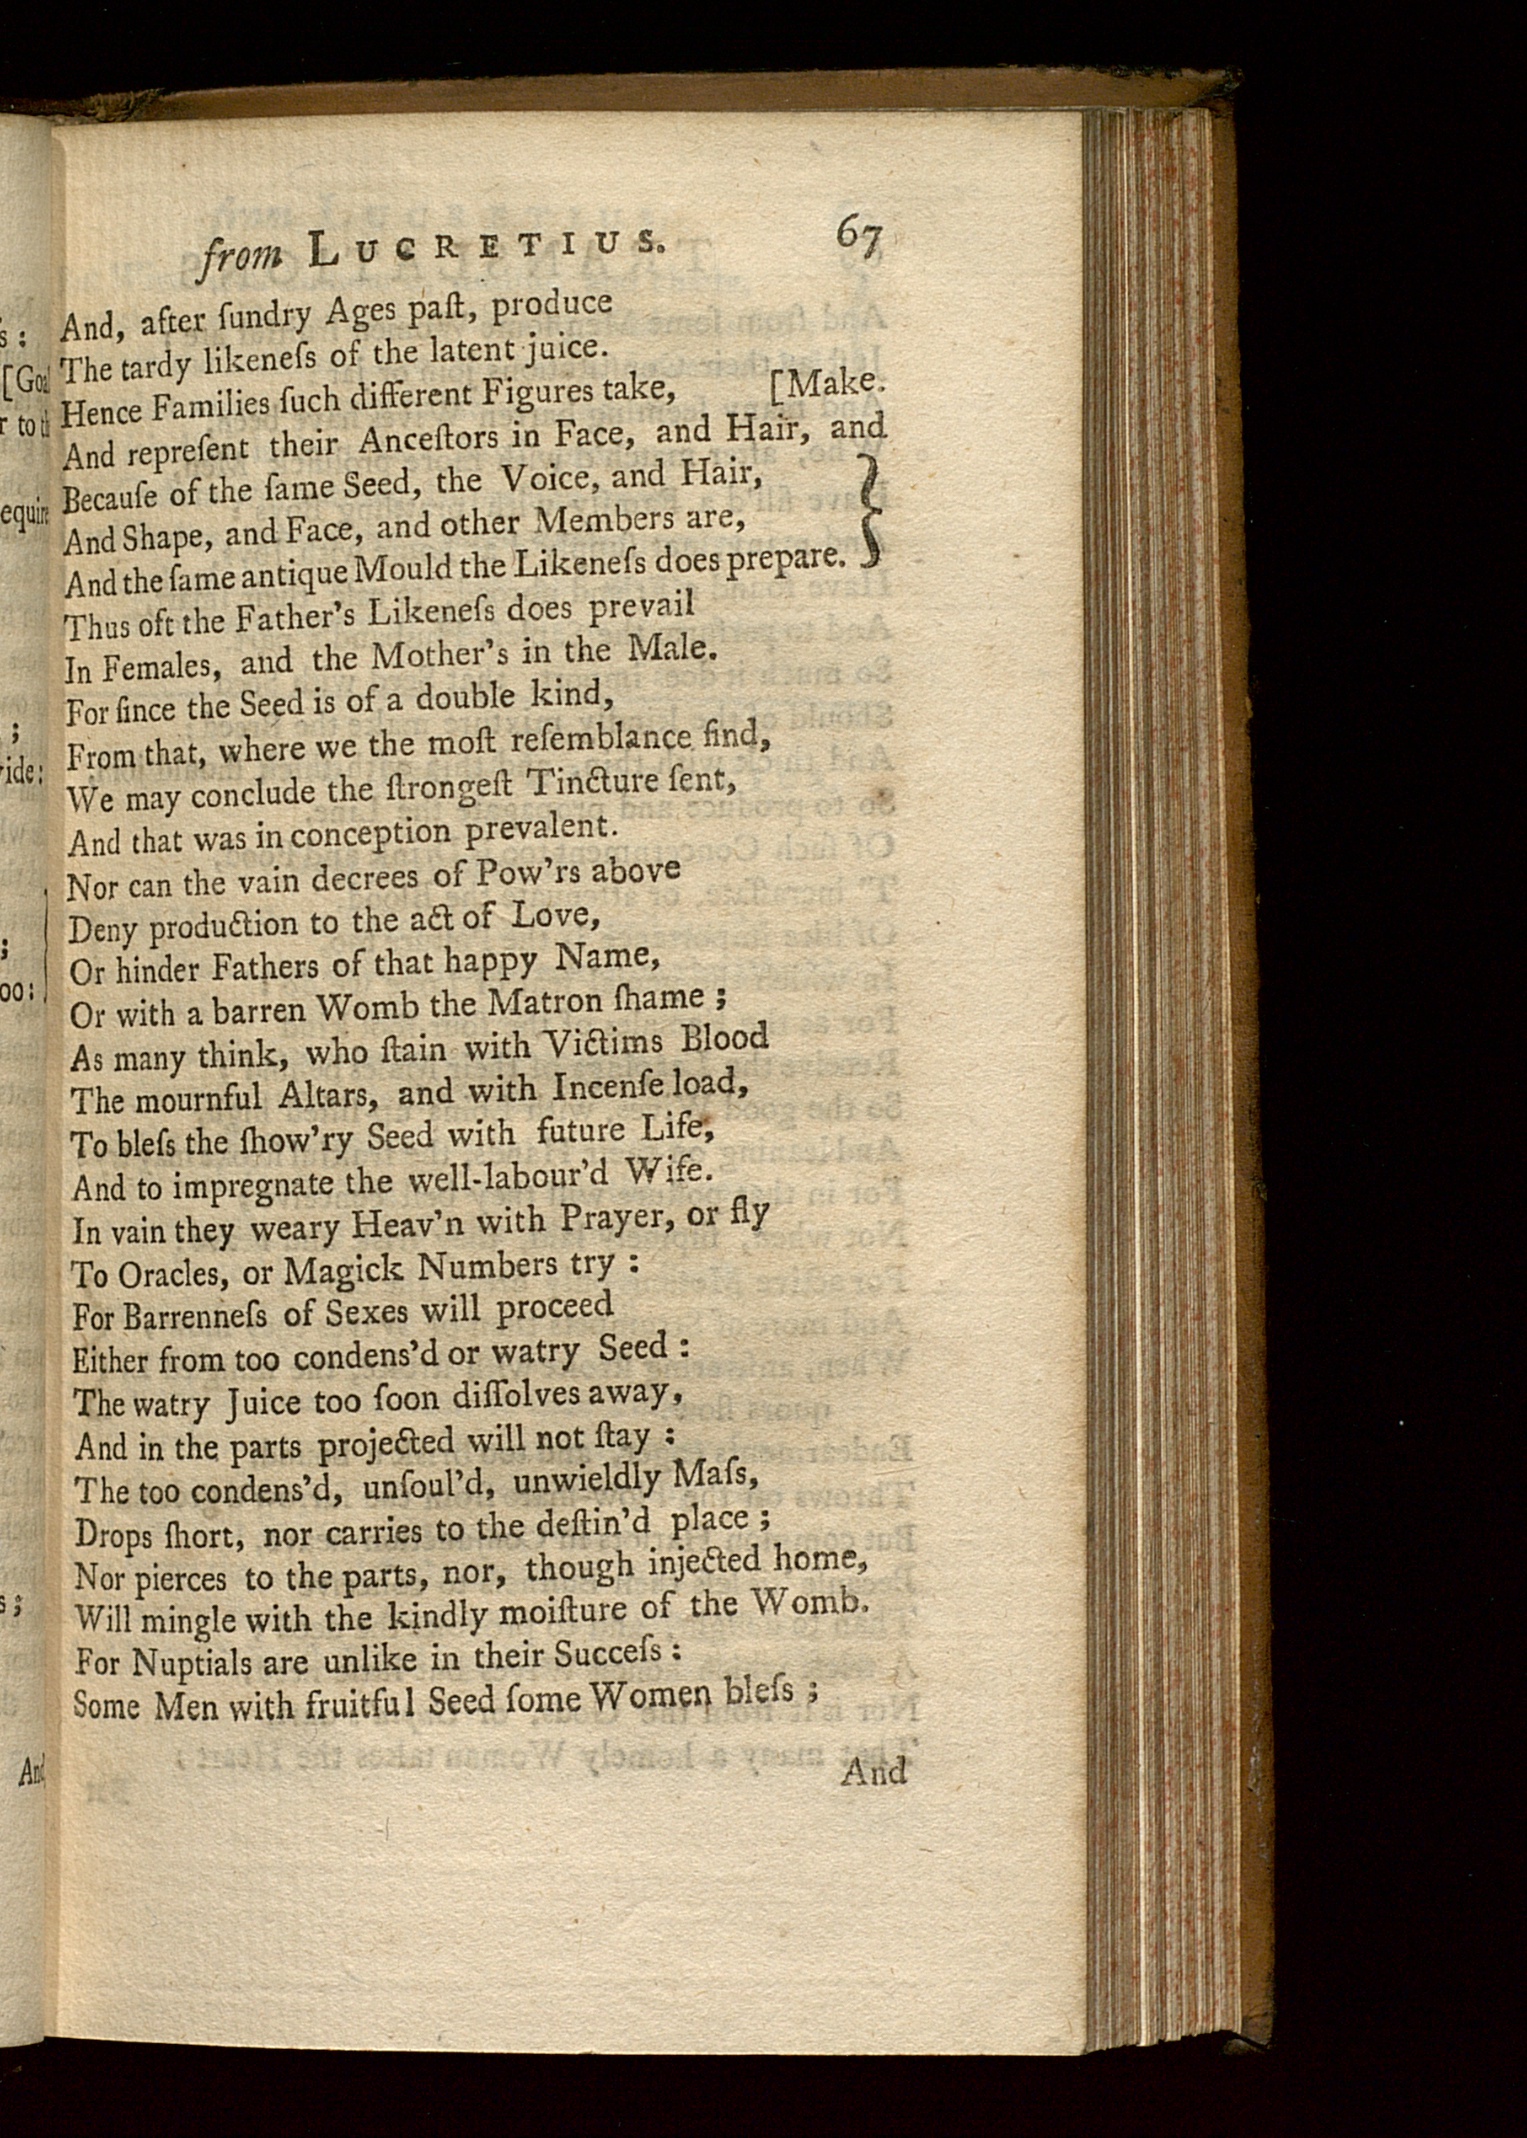 from LUCRETIUS. 67
And, after ſundry Ages paſt, produce
The tardy likeneſs of the latent juice.
Hence Families ſuch different Figures take, [Make.
And repreſent their Anceſtors in Face, and Hair, and
Becauſe of the ſame Seed, the Voice, and Hair,
And Shape, and Face, and other Members are,
And the ſame antique Mould the Likeneſs does prepare. }
Thus oft the Father's Likeneſs does prevail
In Females, and the Mother's in the Male.
For ſince the Seed is of a double kind,
From that, where we the moſt reſemblance find,
We may conclude the ſtrongeſt Tincture ſent,
And that was in conception prevalent.
Nor can the vain decrees of Pow'rs above
Deny production to the act of Love,
Or hinder Fathers of that happy Name,
Or with a barren Womb the Matron ſhame ;
As many think, who ſtain with Victims Blood
The mournful Altars, and with Incenſe load,
To bleſs the ſhow'ry Seed with future Life,
And to impregnate the well-labour'd Wife.
In vain they weary Heav'n with Prayer, or fly
To Oracles, or Magick Numbers try :
For Barrenneſs of Sexes will proceed
Either from too condens'd or watry Seed :
The watry Juice too ſoon diſſolves away,
And in the parts projected will not ſtay :
The too condens'd, unſoul'd, unwieldly Maſs,
Drops ſhort, nor carries to the deſtin'd place ;
Nor pierces to the parts, nor, though injected home,
Will mingle with the kindly moiſture of the Womb.
For Nuptials are unlike in their Succeſs :
Some Men with fruitful Seed ſome Women bleſs ;
And